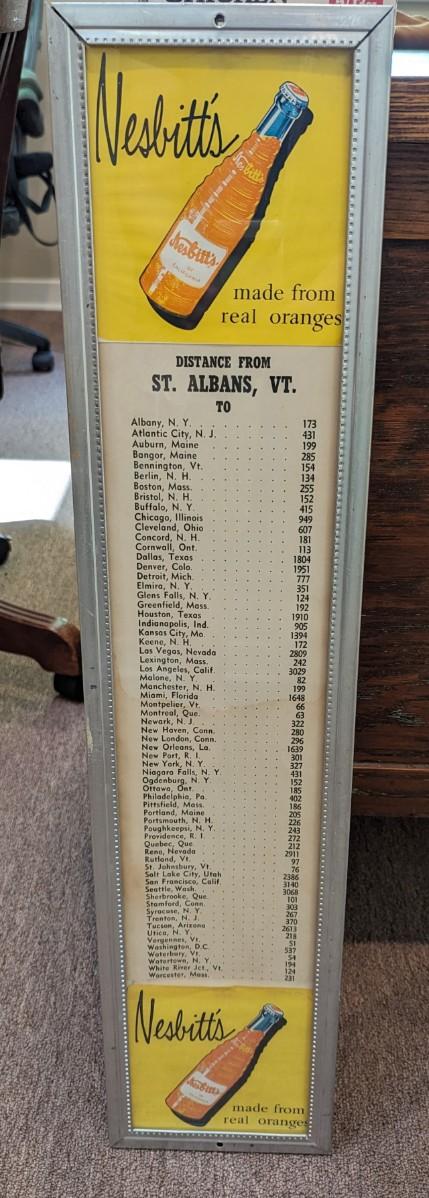 Nesbitt's
Nesbitt's
Nesbitt's
OF CALIFORNIA
made from
real oranges
DISTANCE FROM
ST. ALBANS, VT.
TO
Albany, N. Y. 173
Atlantic City, N. J. 431
Auburn, Maine 199
Bangor, Maine 285
Bennington, Vt. 154
Berlin, N. H. 134
Boston, Mass. 255
Bristol, N. H. 152
Buffalo, N. Y. 415
Chicago, Illinois 949
Cleveland, Ohio 607
Concord, N. H. 181
Cornwall, Ont. 113
Dallas, Texas 1804
Denver, Colo. 1951
Detroit, Mich. 777
Elmira, N. Y. 351
Glens Falls, N. Y. 124
Greenfield, Mass. 192
Houston, Texas 1910
Indianapolis, Ind. 905
Kansas City, Mo. 1394
Keene, N. H. 172
Las Vegas, Nevada 2809
Lexington, Mass. 242
Los Angeles, Calif. 3029
Malone, N. Y. 82
Manchester, N. H. 199
Miami, Florida 1648
Montpelier, Vt. 66
Montreal, Que. 63
Newark, N. J. 322
New Haven, Conn. 280
New London, Conn. 296
New Orleans, La. 1639
New Port, R. I. 301
New York, N. Y. 327
Niagara Falls, N. Y. 431
Ogdenburg, N. Y. 152
Ottawa, Ont. 185
Philadelphia, Pa. 402
Pittsfield, Mass. 186
Portland, Maine 205
Portsmouth, N. H. 226
Poughkeepsi, N. Y. 243
Providence, R. I. 272
Quebec, Que. 212
Reno, Nevada 2911
Rutland, Vt. 97
St. Johnsbury, Vt. 76
Salt Lake City, Utah 2386
San Francisco, Calif. 3140
Seattle, Wash. 3068
Sherbrooke, Que. 101
Stamford, Conn. 303
Syracuse, N. Y. 267
Trenton, N. J. 370
Tucson, Arizona 2613
Utica, N. Y. 218
Vergennes, Vt. 51
Washington, D.C. 537
Waterbury, Vt. 54
Watertown, N. Y. 194
White River Jct., Vt. 124
Worcester, Mass. 231
Nesbitt's
Nesbitt's
made from
real oranges